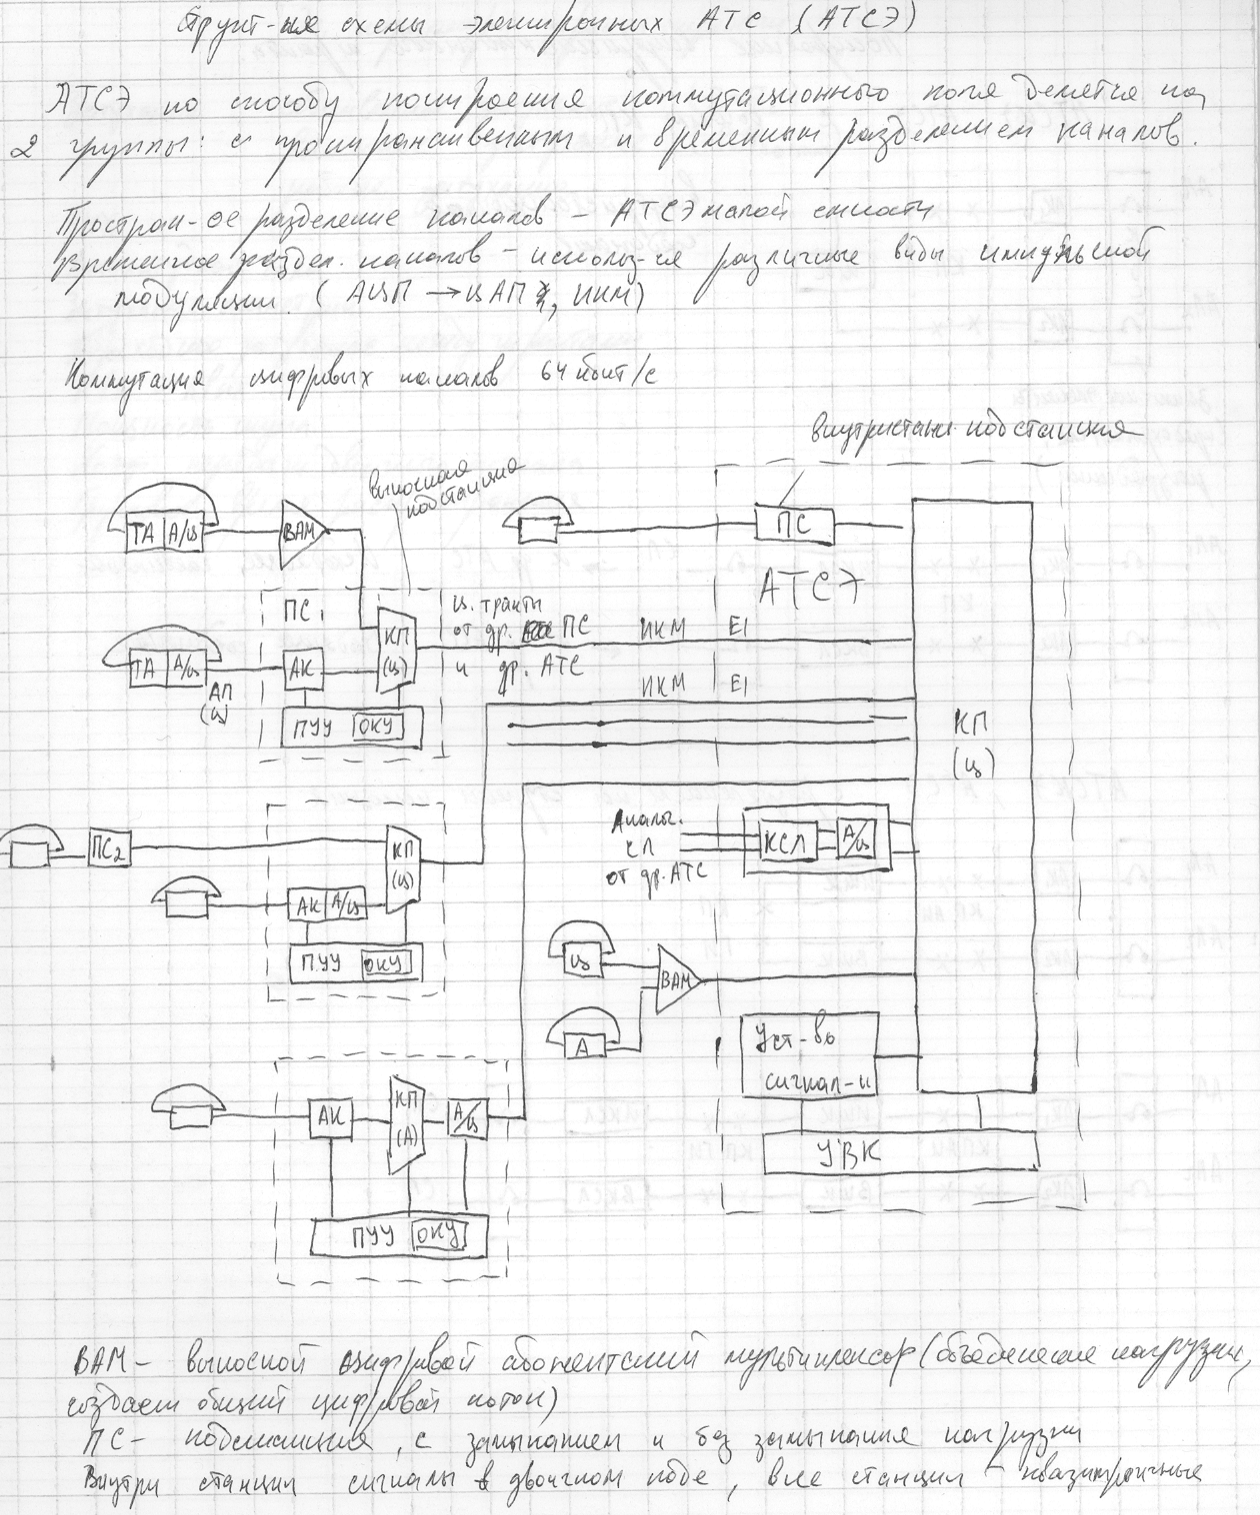 Структ-ные схемы электронных АТС (АТСЭ)
АТСЭ по способу построения коммутационного поля делятся на
2 группы: с пространственным и временным разделением каналов.
Простран-ое разделение каналов – АТСЭ малой емкости
Временное раздел. каналов – использ-ся различные виды импульсной
модуляции. (АЦП → ЦАП, ИКМ)
Коммутация цифровых каналов 64 кбит/с
внутристанц. подстанция
выносная
подстанция
ТА А/Ц
ВАМ
ПС
АТСЭ
ПС1
КП
(Ц)
Ц. тракты
от др. ПС
и др. АТС
ИКМ E1
ИКМ E1
ТА А/Ц
АП
(Ц)
АК
ПУУ ОКУ
КП
(Ц)
ПС2
КП
(Ц)
АК А/Ц
ПУУ ОКУ
Аналог.
СЛ
от др. АТС
КСЛ А/Ц
Ц
ВАМ
А
Уст-во
сигнал-и
УВК
АК
КП
(А)
А/Ц
ПУУ ОКУ
ВАМ – выносной цифровой абонентский мультиплексор (объединение нагрузки,
создает общий цифровой поток)
ПС – подстанция, с замыканием и без замыкания нагрузки
Внутри станции сигналы в двоичном коде, вне станции – квазитроичные